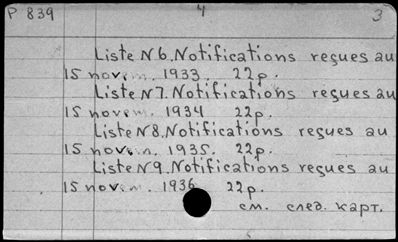 P 839 4 3
Liste N 6. Notifications reçues au
15 novem. 1933. 22p.
Liste N 7. Notifications reçues au
15 novem. 1934 22p.
Liste N 8. Notifications reçues au
15 novem. 1935. 22p.
Liste N 9. Notifications reçues au
15 novem. 1936 22p.
см. след. карт.